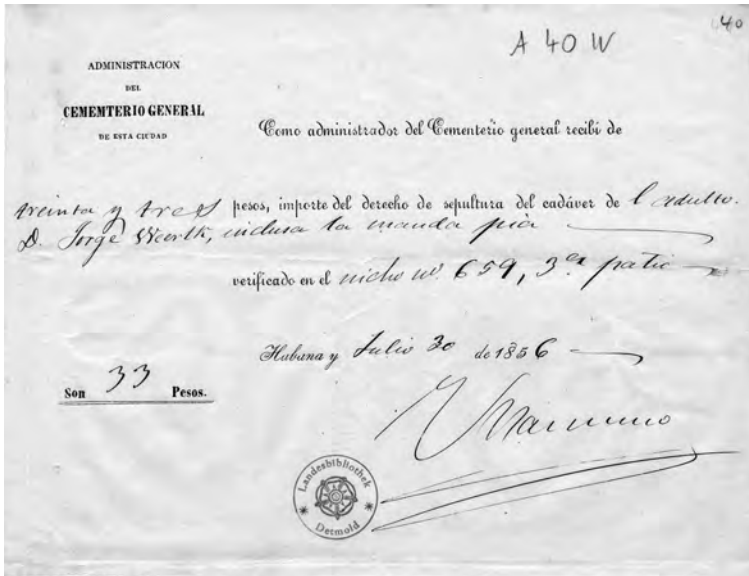 40
A 40 W
ADMINISTRACION
DEL
CEMEMTERIO GENERAL
DE ESTA CIUDAD
Como administrador del Cementerio general recibi de
treinta y tres pesos, importe del derecho de sepultura del cadáver de l adulto.
D. Jorge Weerth, inclusa la manda pia
verificado en el nicho nº 659, 3er patio
Habana y Julio 30 de 1856
Son 33 Pesos.
Landesbibliothek
Detmold